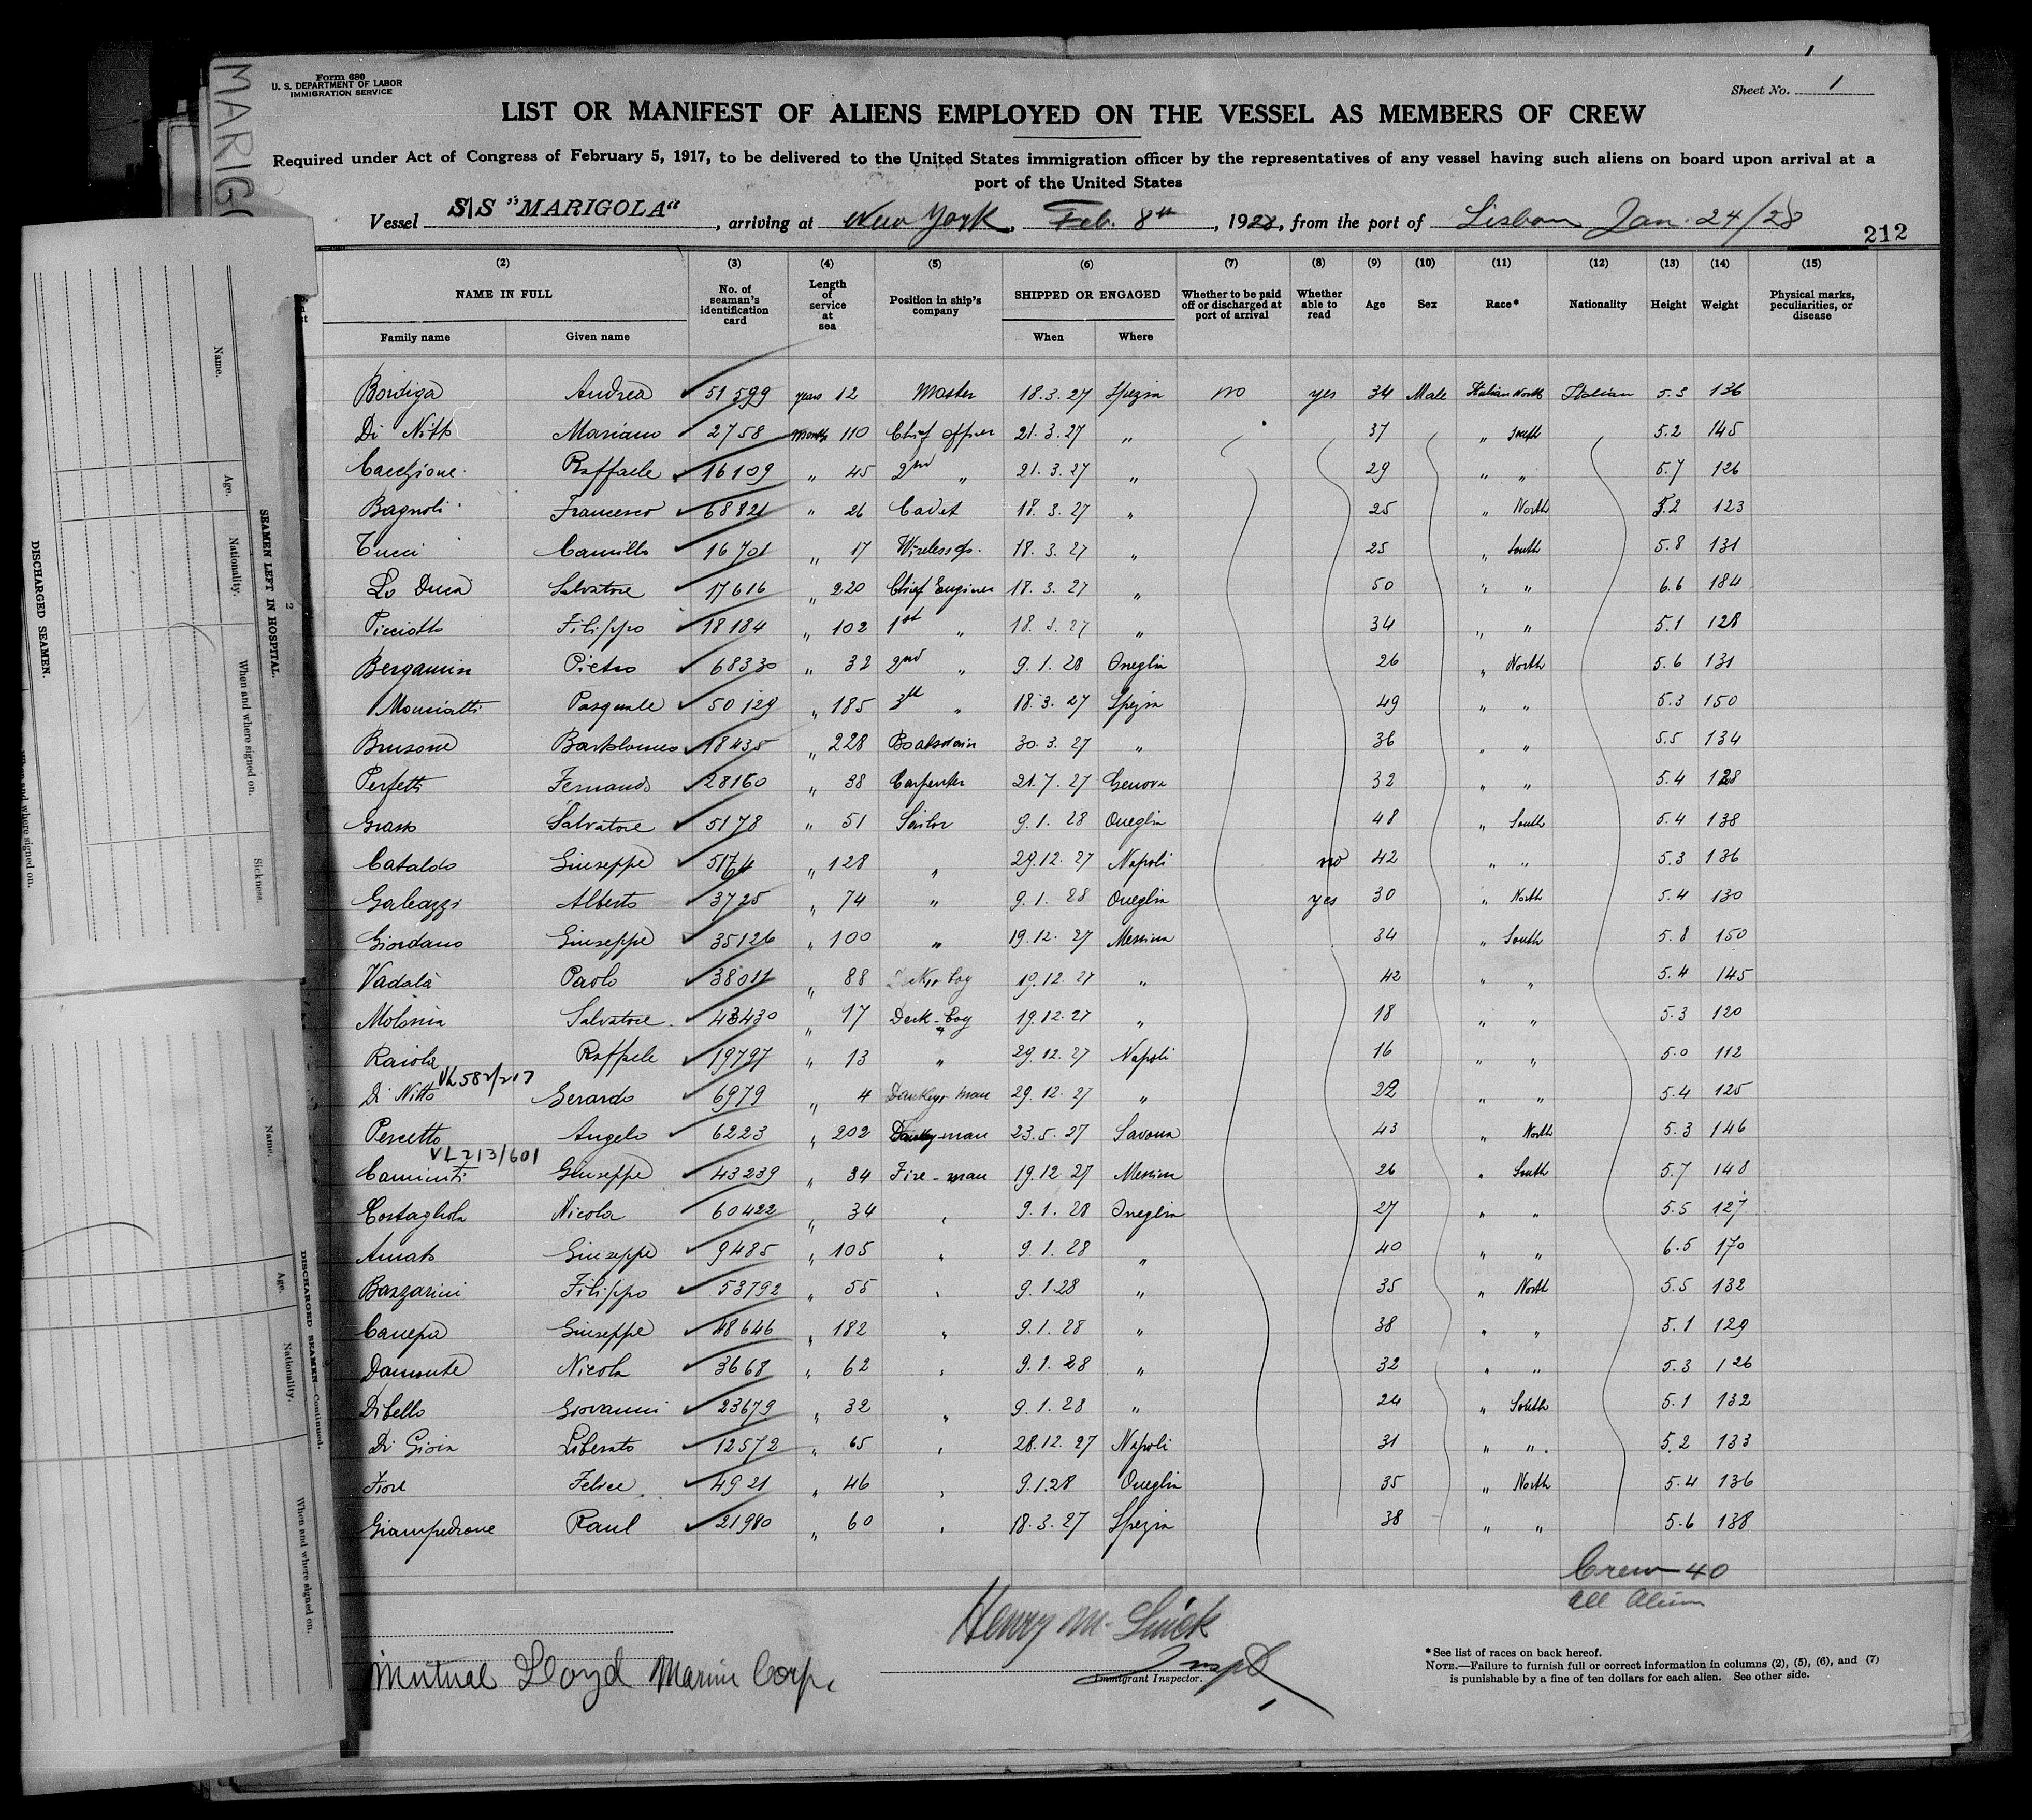 MARIGO
Form 680
U. S. DEPARTMENT OF LABOR
IMMIGRATION SERVICE
1
Sheet No. 1
LIST OR MANIFEST OF ALIENS EMPLOYED ON THE VESSEL AS MEMBERS OF CREW
Required under Act of Congress of February 5, 1917, to be delivered to the United States immigration officer by the representatives of any vessel having such aliens on board upon arrival at a
port of the United States
Vessel S|S "MARIGOLA", arriving at New York, Feb. 8th, 1928, from the port of Lisbon Jan. 24/28
212
(2) (3) (4) (5) (6) (7) (8) (9) (10) (11) (12) (13) (14) (15)
NAME IN FULL No. of seaman's identification card Length of service at sea Position in ship's company SHIPPED OR ENGAGED Whether to be paid off or discharged at port of arrival Whether able to read Age Sex Race* Nationality Height Weight Physical marks, peculiarities, or disease
Family name Given name When Where
Bordiga Andrea 51599 years 12 Master 18.3.27 Spezia no yes 34 Male Italian North Italian 5.3 136
Di Nitto Mariano 2758 months 110 Chief officer 21.3.27 " 37 " South 5.2 145
Cacchione Raffaele 16109 " 45 2nd " 21.3.27 " 29 " " 5.7 126
Bagnoli Francesco 68821 " 26 Cadet 18.3.27 " 25 " North 5.2 123
Tucci Camillo 16701 " 17 Wireless op. 18.3.27 " 25 " South 5.8 131
Lo Duca Salvatore 17616 " 220 Chief Enginer 18.3.27 " 50 " " 6.6 184
Picciotto Filippo 18184 " 102 1st " 18.3.27 " 34 " " 5.1 128
Bergamin Pietro 68330 " 32 2nd " 9.1.28 Oneglia 26 " North 5.6 131
Pasquale 50129 " 185 3th " 18.3.27 Spezia 49 " " 5.3 150
Brusone Bartolomeo 18435 " 228 Boatswain 30.3.27 " 36 " " 5.5 134
Perfetti Fernando 28160 " 38 Carpenter 21.7.27 Genova 32 " " 5.4 128
Grasso Salvatore 5178 " 51 Sailor 9.1.28 Oneglia 48 " South 5.4 138
Cataldo Giuseppe " 128 " 29.12.27 Napoli no 42 " " 5.3 136
Galeazzi Alberto 3725 " 74 " 9.1.28 Oneglia yes 30 " North 5.4 130
Giordano Giuseppe 35126 " 100 " 19.12.27 Messina 34 " South 5.8 150
Vadalà Paolo 38011 " 88 boy 19.12.27 " 42 " " 5.4 145
Molonia Salvatore 43430 " 17 Deck-boy 19.12.27 " 18 " " 5.3 120
Raiola Raffaele 19797 " 13 " 29.12.27 Napoli 16 " " 5.0 112
VL 582/217
Di Nitto Gerardo 6979 " 4 Donkey-man 29.12.27 " 22 " " 5.4 125
Percetto Angelo 6223 " 202 Donkey-man 23.5.27 Savona 43 " North 5.3 146
VL 213/601
Caminiti Giuseppe 43239 " 34 Fire-man 19.12.27 Messina 26 " South 5.7 148
Costagliola Nicola 60422 " 34 " 9.1.28 Oneglia 27 " " 5.5 127
Amato Giuseppe 9485 " 105 " 9.1.28 " 40 " " 6.5 170
Bazzarini Filippo 53792 " 55 " 9.1.28 " 35 " North 5.5 132
Canepa Giuseppe 48646 " 182 " 9.1.28 " 38 " " 5.1 129
Damonte Nicola 3668 " 62 " 9.1.28 " 32 " " 5.3 126
Dibello Giovanni 23679 " 32 " 9.1.28 " 24 " South 5.1 132
Di Gioia Liberato 12572 " 65 " 28.12.27 Napoli 31 " " 5.2 133
Fiore Felice 4921 " 46 " 9.1.28 Oneglia 35 " North 5.4 136
Giampedrone Raul 21980 " 60 " 18.3.27 Spezia 38 " " 5.6 138
Crew-40
all Alien
Henry M.
Insp
Immigrant Inspector.
Mutual Lloyd Marine Corp.
* See list of races on back hereof.
NOTE.—Failure to furnish full or correct information in columns (2), (5), (6), and (7)
is punishable by a fine of ten dollars for each alien. See other side.
2
SEAMEN LEFT IN HOSPITAL.
Name.
Age.
Nationality.
When and where signed on.
Sickness.
DISCHARGED SEAMEN.
and where signed on.
DISCHARGED SEAMEN—Continued.
Name.
Age.
Nationality.
When and where signed on.